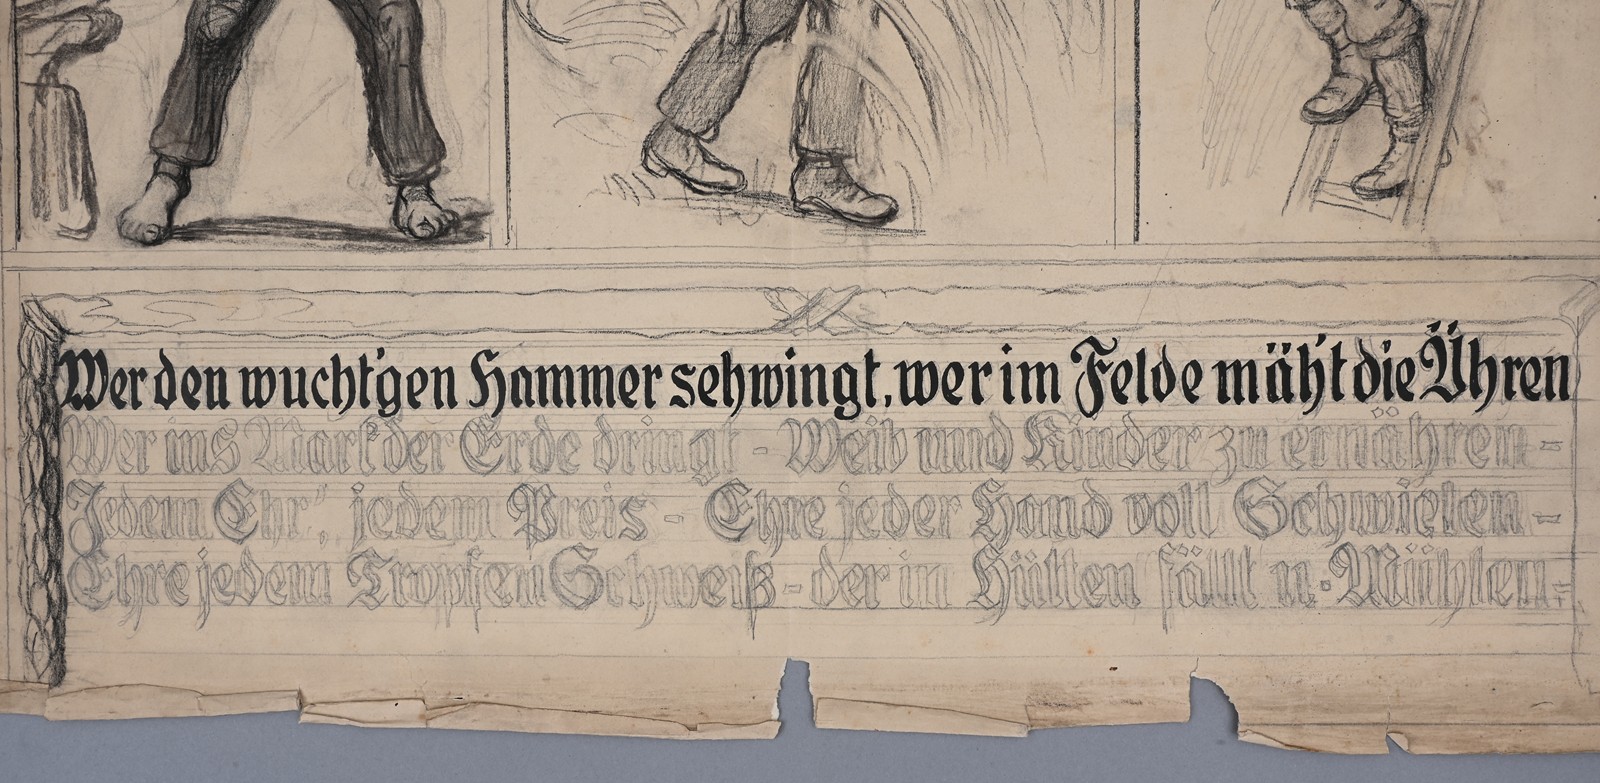 Wer den wucht'gen Hammer schwingt, wer im Felde mäh't die Ähren
Wer ins Mark der Erde dringt - Weib und Kinder zu ernähren -
Jedem Ehr', jedem Preis - Ehre jeder Hand voll Schwielen -
Ehre jedem Tropfen Schweiß - der in Hütten fällt u. Mühlen -